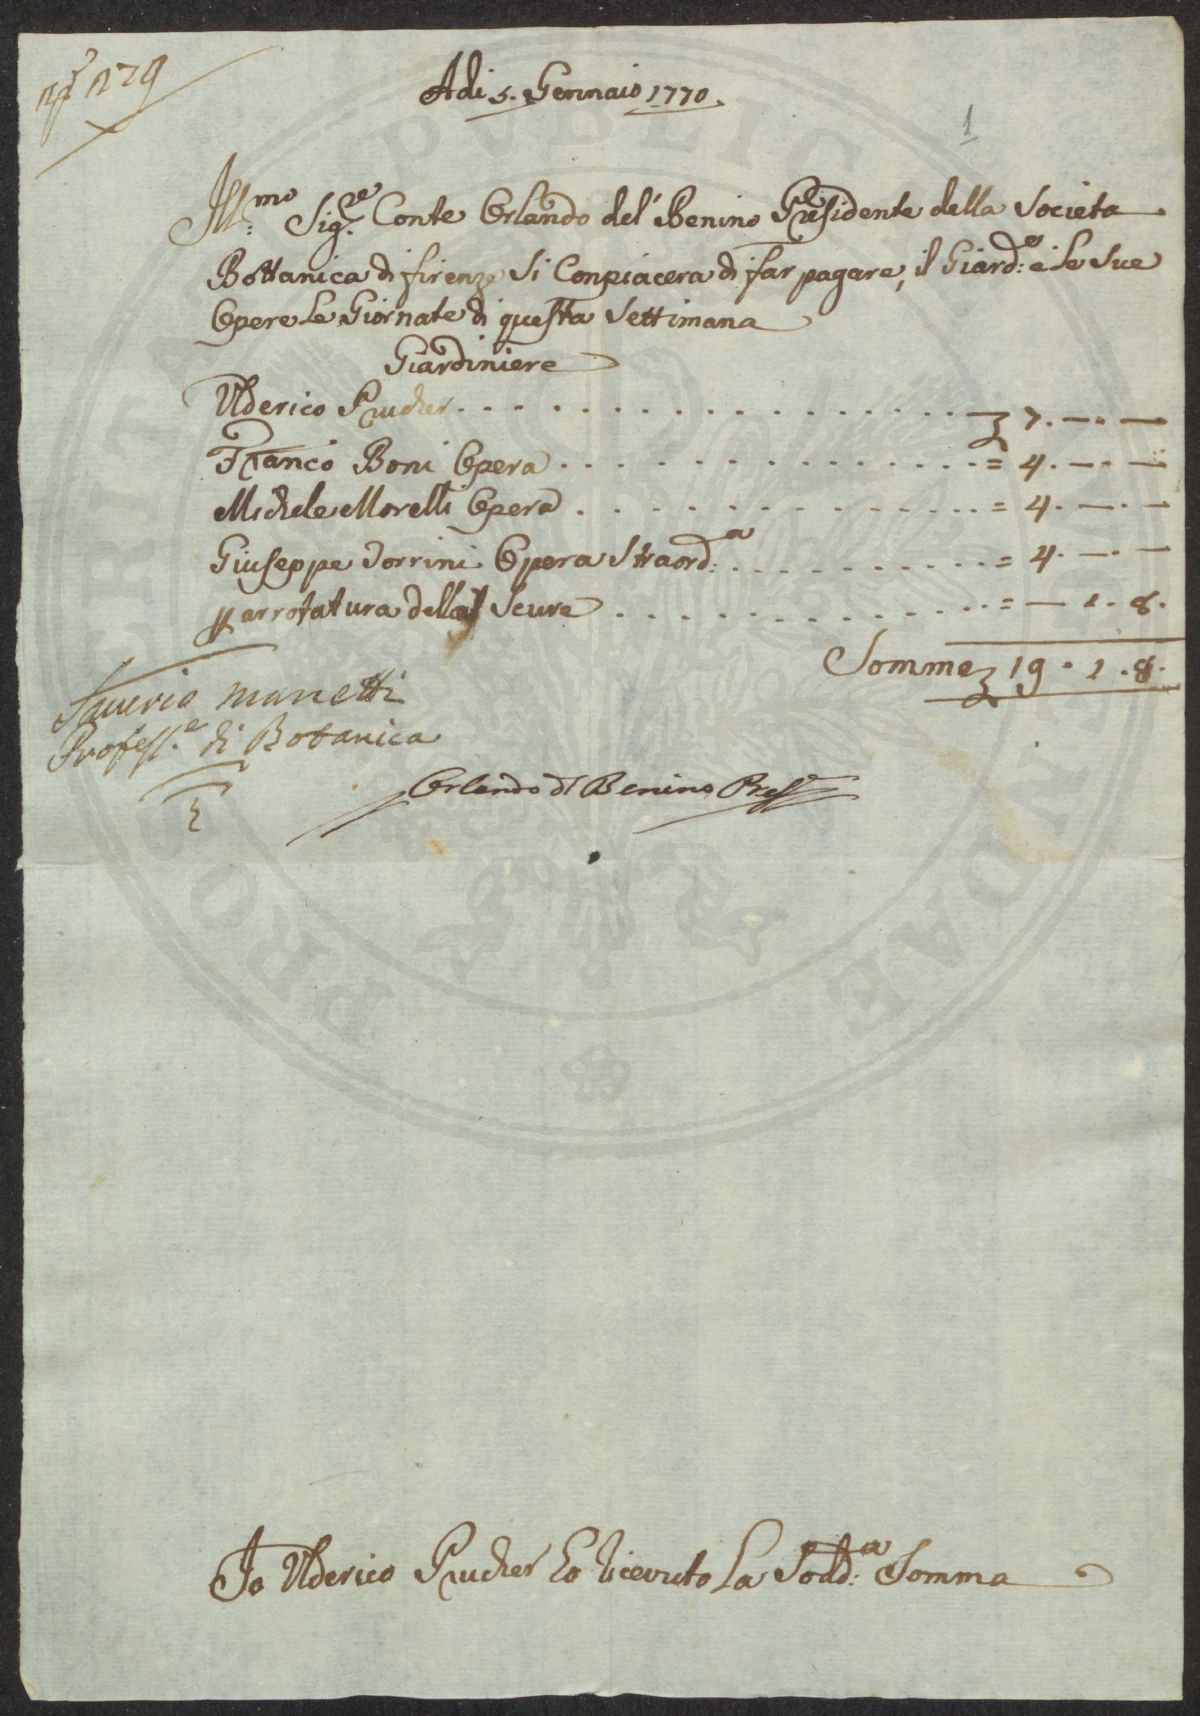 N.° 279
Adi 5. Gennaio 1770.
1
Ill:mo Sig:re Conte Orlando del' Benino Presidente della Societa
Bottanica di firenze Si Conpiacera di far pagare, il Giard:e e Le Sue
Opere Le Giornate di questa Settimana
Giardiniere
Ulderico Prucher . . . . . . . . . . . . £ 7. —. —
Franco Boni Opera . . . . . . . . . . = 4. —. —
Michele Morelli Opera . . . . . . . . . . = 4. —. —
Giuseppe Dorrini Opera Straord:a . . . . . . . . . = 4. —. —
p arrotatura della Scure . . . . . . . . . = — 1. 8.
Somma £ 19. 1. 8.
Saverio Manetti
Profess.e di Botanica
Orlando dl Benino Pres.e
Io Ulderico Prucher Ho ricevuto La Sodd:a Somma
PROSPERITATI PVBLICAE